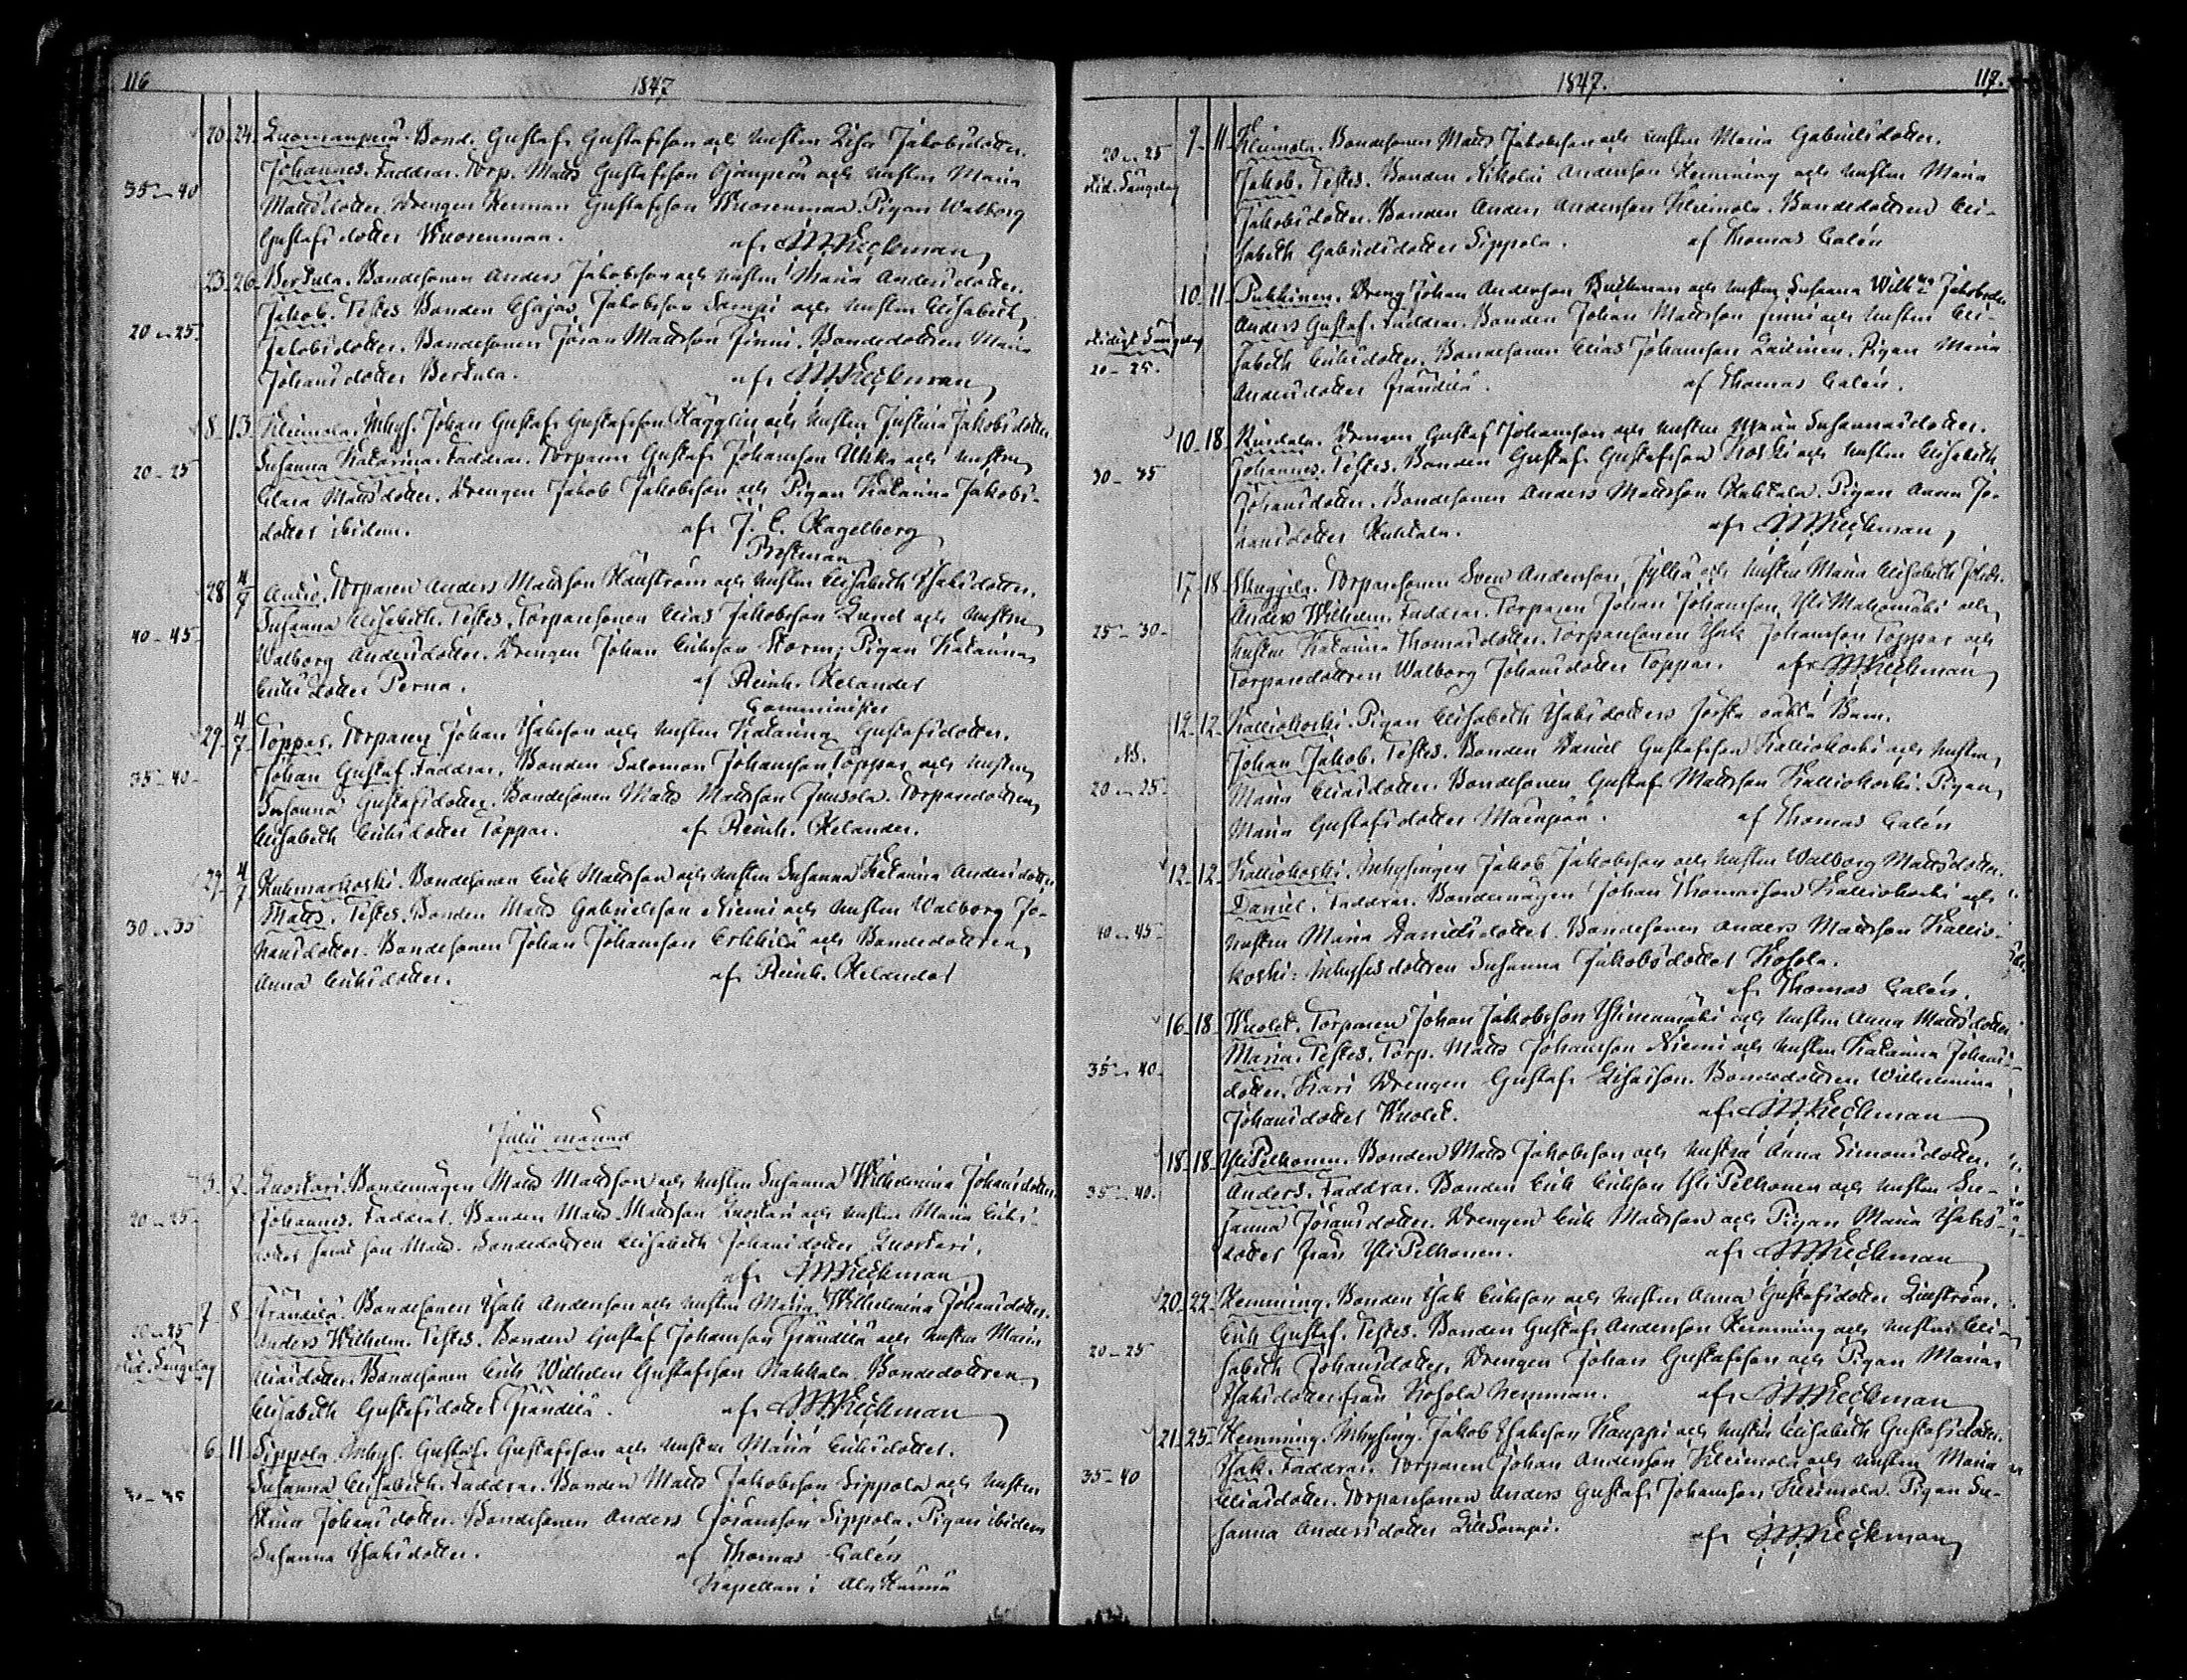 116
1847
20 24 Luomanperä. Bond. Gustaf Gustafsson och hustru Lisa Jakobsdotter.
Johannes. Faddrar. Torp. Matts Gustafsson och hustru Maria
35 - 40
Mattsdotter. Drengen Herman Gustafsson Wuorenmaa. Pigan Walborg
Gustafsdotter Wuorenmaa. af
23 26 Bertula. Bondesonen Anders Jakobsson och hustru Maria Andersdotter.
Jakob. Testes Bonden Esajas Jakobsson Sampi och hustru Elisabeth
20 - 25.
Jakobsdotter. Bondesonen Jöran Mattsson Finni. Bondedottren Maria
Johansdotter Bertula. af
8 13 Kleimola. Inhys. Johan Gustaf Gustafsson Hägglin och hustru Justina Jakobsdotter
Susanna Katarina. Faddrar. Torparen Gustaf Johansson och hustru
20 - 25
Clara Mattsdotter. Drengen Jakob Jakobsson och Pigan Katarina Jakobs-
dotter ibidem. af J. E. Hagelberg
28 4/7 Torparen Anders Mattsson och hustru Elisabeth Isaksdotter.
Susanna Elisabeth. Testes. Torparesonen Elias Jakobsson Lund och hustru
40 - 45
Walborg Andersdotter. Drengen Johan Eriksson Storm; Pigan Katarina
Eriksdotter Perna. af Reinh. Helander
Comminister
29 4/7 Toppar. Torparen Johan Isaksson och hustru Katarina Gustafsdotter.
Johan Gustaf. Faddrar. Bonden Salomon Johansson Toppar och hustru
35 - 40
Susanna Gustafsdotter. Bondesonen Matts Mattsson Juusola. Torparedottren
Elisabeth Eriksdotter Toppar. af Reinh. Helander.
29 4/7 Huhmarkoski. Bondesonen Erik Mattsson och hustru Susanna Katarina Andersdotter
Matts. Testes. Bonden Matts Gabrielsson Niemi och hustru Walborg Jo-
30 - 35
hansdotter. Bondesonen Johan Johansson Erkkilä och Bondedottren
Anna Eriksdotter. af Reinh. Helander
Julii månad
3 7 Luostari. Bondemågen Matts Mattsson och hustru Susanna Wilhelmina Johansdotter
Johannes. Faddrar. Bonden Matts Mattsson Luostari och hustru Maria Eriks-
20 - 25
dotter samt son Matts. Bondedottren Elisabeth Johansdotter Luostari.
af
7 8 Frändilä. Bondesonen Isak Andersson och hustru Maria Wilhelmina Johansdotter.
20 - 25
Anders Wilhelm. Testes. Bonden Gustaf Johansson Frändilä och hustru Maria
Eliasdotter. Bondesonen Erik Wilhelm Gustafsson Kakkala. Bondedottren
Elisabeth Gustafsdotter Frändilä. af
6 11 Sippola. Inhys. Gustaf Gustafsson och hustru Maria Eriksdotter.
Susanna Elisabeth. Faddrar. Bonden Matts Jakobsson Sippola och hustru
30 - 35
Johansdotter. Bondesonen Anders Göransson Sippola. Pigan ibidem
Susanna Isaksdotter. af Thomas Calén
Kapellan i
1847.
117.
9 11 Kleimola. Bondesonen Matts Jakobsson och hustru Maria Gabrielsdotter.
20 - 25
Jakob. Testes. Bonden Nikolai Andersson Hemming och hustru Maria
Jakobsdotter. Bonden Anders Andersson Kleimola. Bondedottren Eli-
sabeth Gabrielsdotter Sippola. af Thomas Calén
10 11 Pukkinen. Dreng Johan Andersson och hustru Susanna Jakobsdr
Anders Gustaf. Faddrar. Bonden Johan Mattsson Finni och hustru Eli-
20 - 25.
sabeth Eriksdotter. Bondesonen Elias Johansson Pigan Maria
Andersdotter Frändilä. af Thomas Calén.
10 18 Drengen Gustaf Johansson och hustru Maria Susannasdotter.
30 - 35
Johannes. Testes. Bonden Gustaf Gustafsson Koski och hustru Elisabeth
Johansdotter. Bondesonen Anders Mattsson Huhtala. Pigan Anna Jo-
hansdotter Huhtala. af
17 18 Torparesonen Sven Andersson och hustru Maria Elisabeth
25 - 30
Anders Wilhelm. Faddrar. Torparen Johan Johansson och
hustru Katarina Thomasdotter. Torparesonen Isak Johansson Toppar och
Torparedottren Walborg Johansdotter Toppar. af
12 12 Kalliokoski. Pigan Elisabeth Isaksdotters första oäkta Barn.
Johan Jakob. Testes. Bonden Daniel Gustafsson Kalliokoski och hustru
20 - 25
Maria Eliasdotter. Bondesonen Gustaf Mattsson Kalliokoski. Pigan
Maria Gustafsdotter Mäenpää. af Thomas Calén
12 12 Kalliokoski. Inhysingen Jakob Jakobsson och hustru Walborg Mattsdotter.
Daniel. Faddrar. Bondemågen Johan Thomasson Kalliokoski och
40 - 45
hustru Maria Danielsdotter. Bondesonen Anders Mattsson Kallio-
koski. Inhysesdottren Susanna Jakobsdotter Kosola.
af Thomas Calén.
16 18 Wuolet. Torparen Johan Jakobsson Ylinenmäki och hustru Anna Mattsdotter
Maria. Testes. Torp. Matts Johansson Niemi och hustru Katarina Johans-
35 - 40
dotter. Kari Drengen Gustaf Bondedottren Wilhelmina
Johansdotter Wuolet. af
18 18 YliPelkonen. Bonden Matts Jakobsson och hustru Anna Simonsdotter.
35 - 40.
Anders. Faddrar. Bonden Erik Eriksson YliPelkonen och hustru Su-
sanna Jöransdotter. Drengen Erik Mattsson och Pigan Maria Isaks-
dotter från YliPelkonen. af
20 22 Hemming. Bonden Isak Eriksson och hustru Anna Gustafsdotter Lindström.
Erik Gustaf. Testes. Bonden Gustaf Andersson Hemming och hustru Eli-
20 - 25
sabeth Johansdotter. Drengen Johan Gustafsson och Pigan Maria
Isaksdotter från Kosola af
21 25 Hemming. Inhysing. Jakob Isaksson Kauppi och hustru Elisabeth Gustafsdotter.
35 - 40
Isak. Faddrar. Torparen Johan Andersson Kleimola och hustru Maria
Eliasdotter. Torparesonen Anders Gustaf Johansson Kleimola. Pigan Su-
sanna Andersdotter af